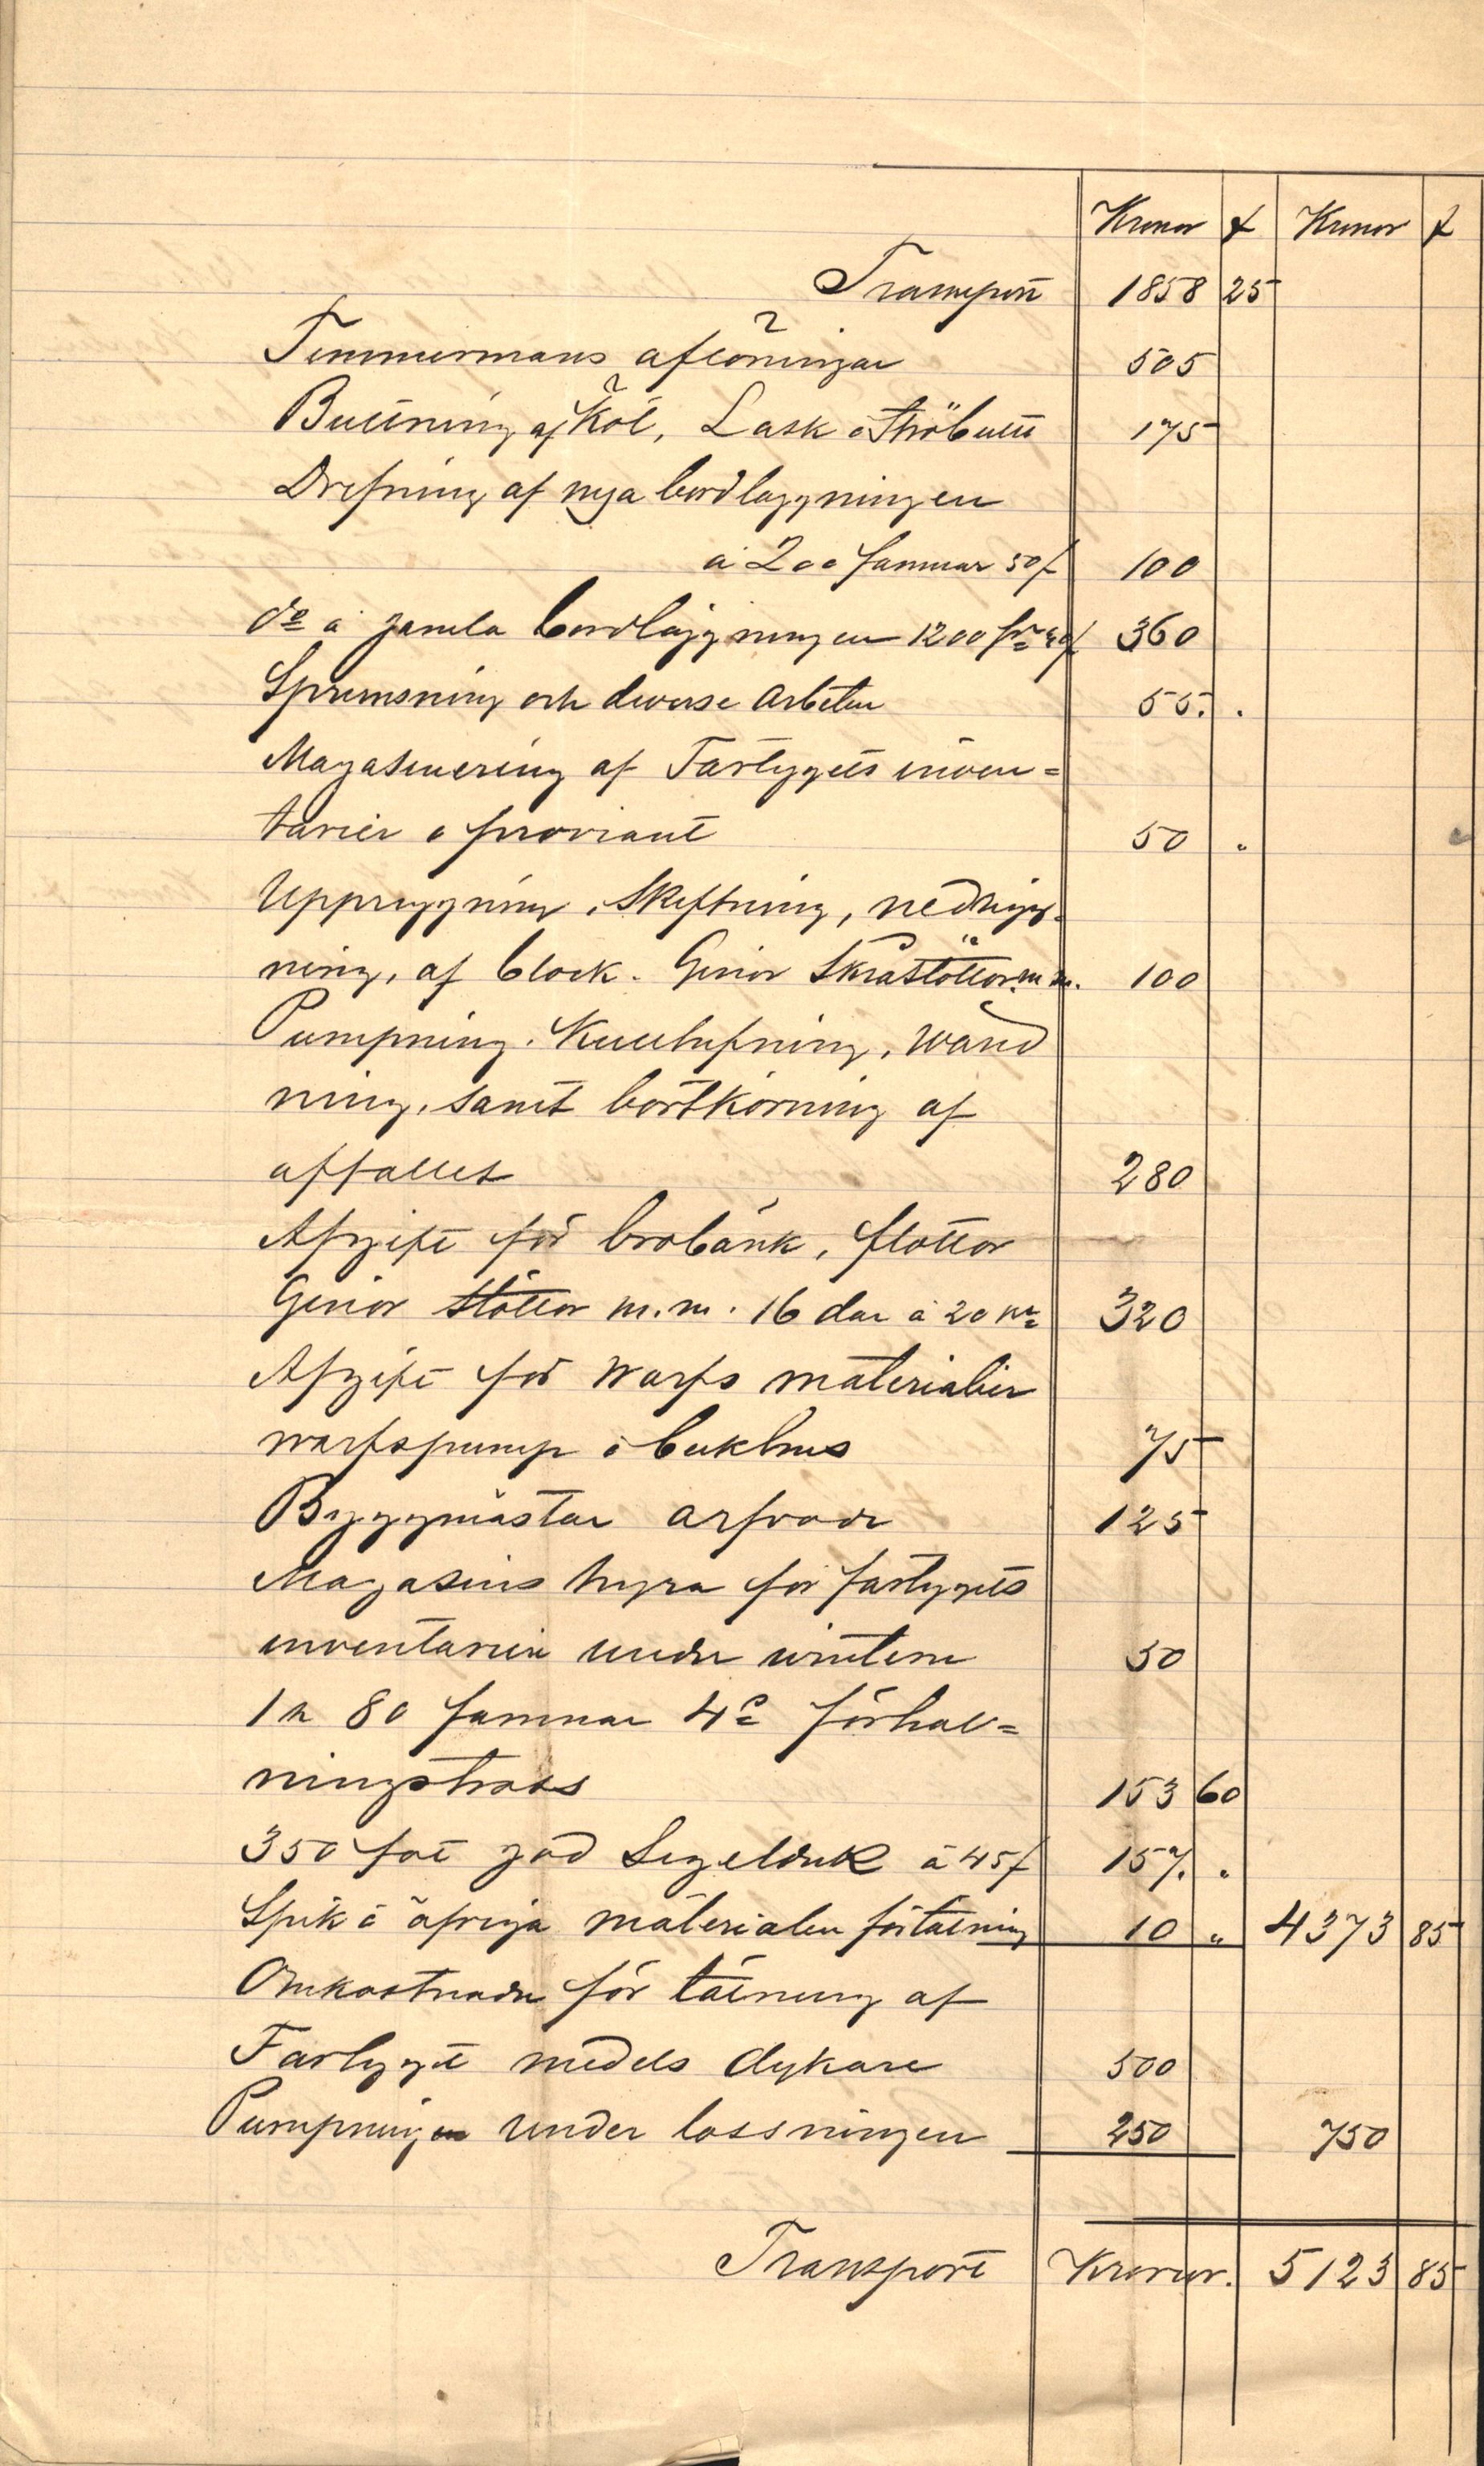 Kronor f Kronor f
Transport 1858 25
Timmermans aflöningar 505
Bultning af Köl, Lask o Stråbult 175
Drefning af nya bordläggningen
à 200 famnar 50 f 100
do å gamla bordläggningen 1200 fr 30 f 360
Sprumsning och diverse arbeten 55. .
Magasinering af Fartygets inven=
tarier o proviant 50 "
Uppriggning, Skeftning, nedrigg=
ning, af block. Ginor Skråstöttor m.m. 100
Pumpning. Kullhufning, Wänd
ning, samt bortkörning af
affallet 280
Afgift för bråbänk, flottor
Ginor Stöttor m.m. 16 dar à 20 kr 320
Afgift för Warfs materialier
warfspump o bukhus 75
Byggmästar arfvode 125
Magasins hyra för fartygets
inventarier under vintern 50
1 st 80 famnar 4" förhal=
ningstross 153 60
350 fot god Segelduk à 45 f 157. "
Spik o öfriga materialer för tätning 10 " 4373 85
Omkostnader för tätning af
Fartyget medels dykare 500
Pumpningen under lossningen 250 750
Transport Kronor. 5123 85